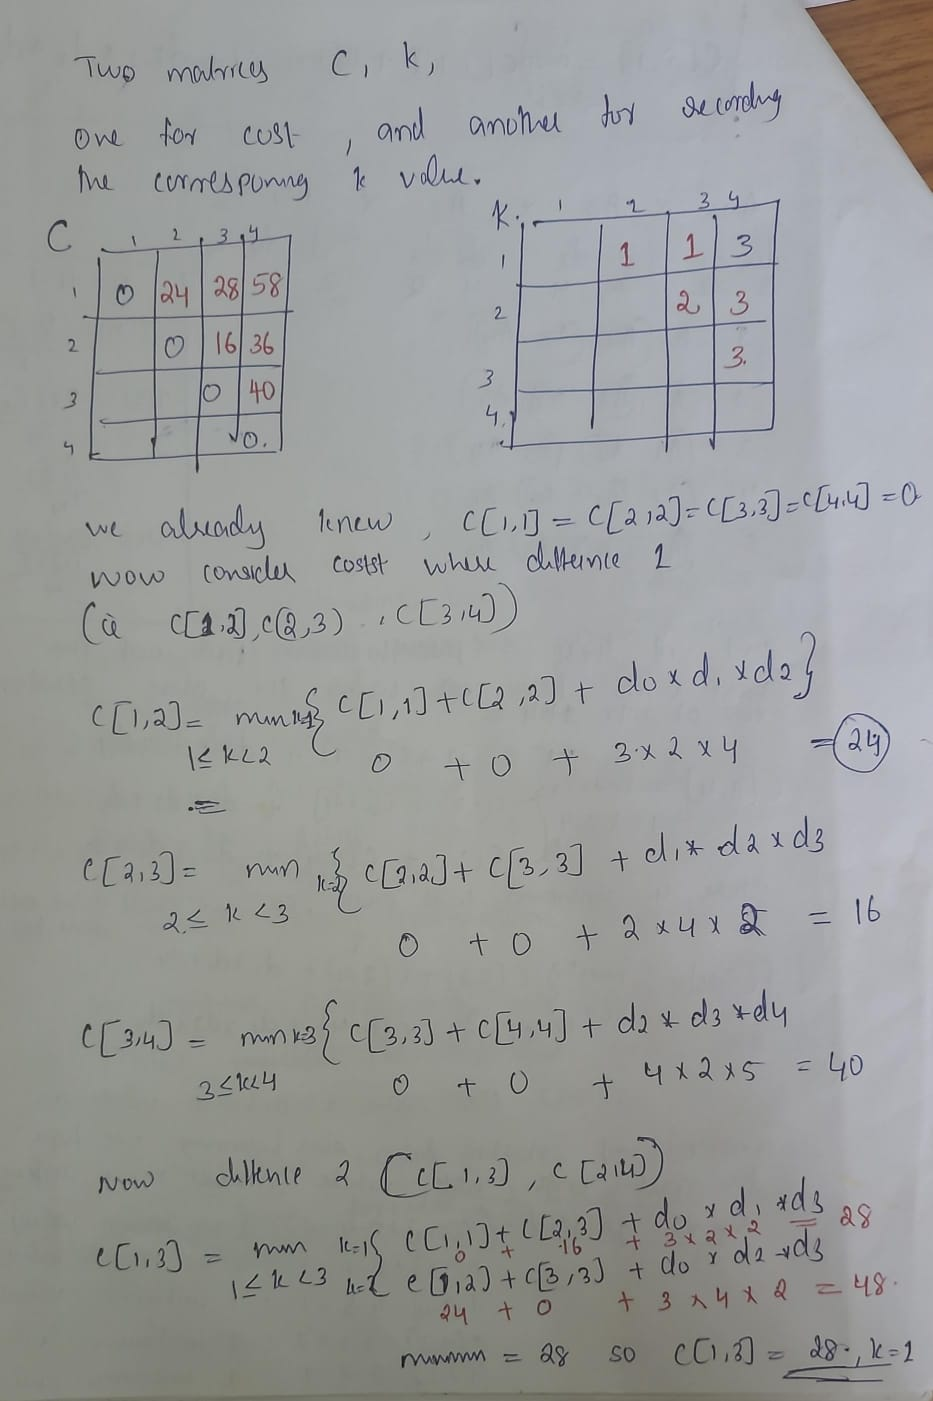 Two matrices C, K,
one for cost, and another for recording
the corresponing k value.
C
1 2 3 4
1 0 24 28 58
2 0 16 36
3 0 40
4 0.
K.
1 2 3 4
1 1 1 3
2 2 3
3 3.
4.
we already knew, C[1,1] = C[2,2]=C[3,3]=C[4,4]=0
Now consider costst where differnce 1
(ie C[1,2], C(2,3), C[3,4])
C[1,2]= min k=1{ C[1,1]+C[2,2] + d0 x d1 x d2}
1≤ k<2 0 + 0 + 3 x 2 x 4 = 24
C[2,3]= min k=2{ C[2,2]+ C[3,3] + d1* d2 x d3
2≤ k <3 0 + 0 + 2 x 4 x 2 = 16
C[3,4] = min k=3{ C[3,3] + C[4,4] + d2 * d3 * d4
3≤k<4 0 + 0 + 4 x 2 x 5 = 40
Now diffence 2 (C[1,3], C[2,4])
C[1,3] = min k=1{ C[1,1]+C[2,3] + d0 x d1 * d3
0 + 16 + 3 x 2 x 2 = 28
1≤ k <3 k=2{ C[1,2]+C[3,3] + d0 x d2 * d3
24 + 0 + 3 x 4 x 2 = 48.
minimum = 28 so C[1,3] = 28., k=1